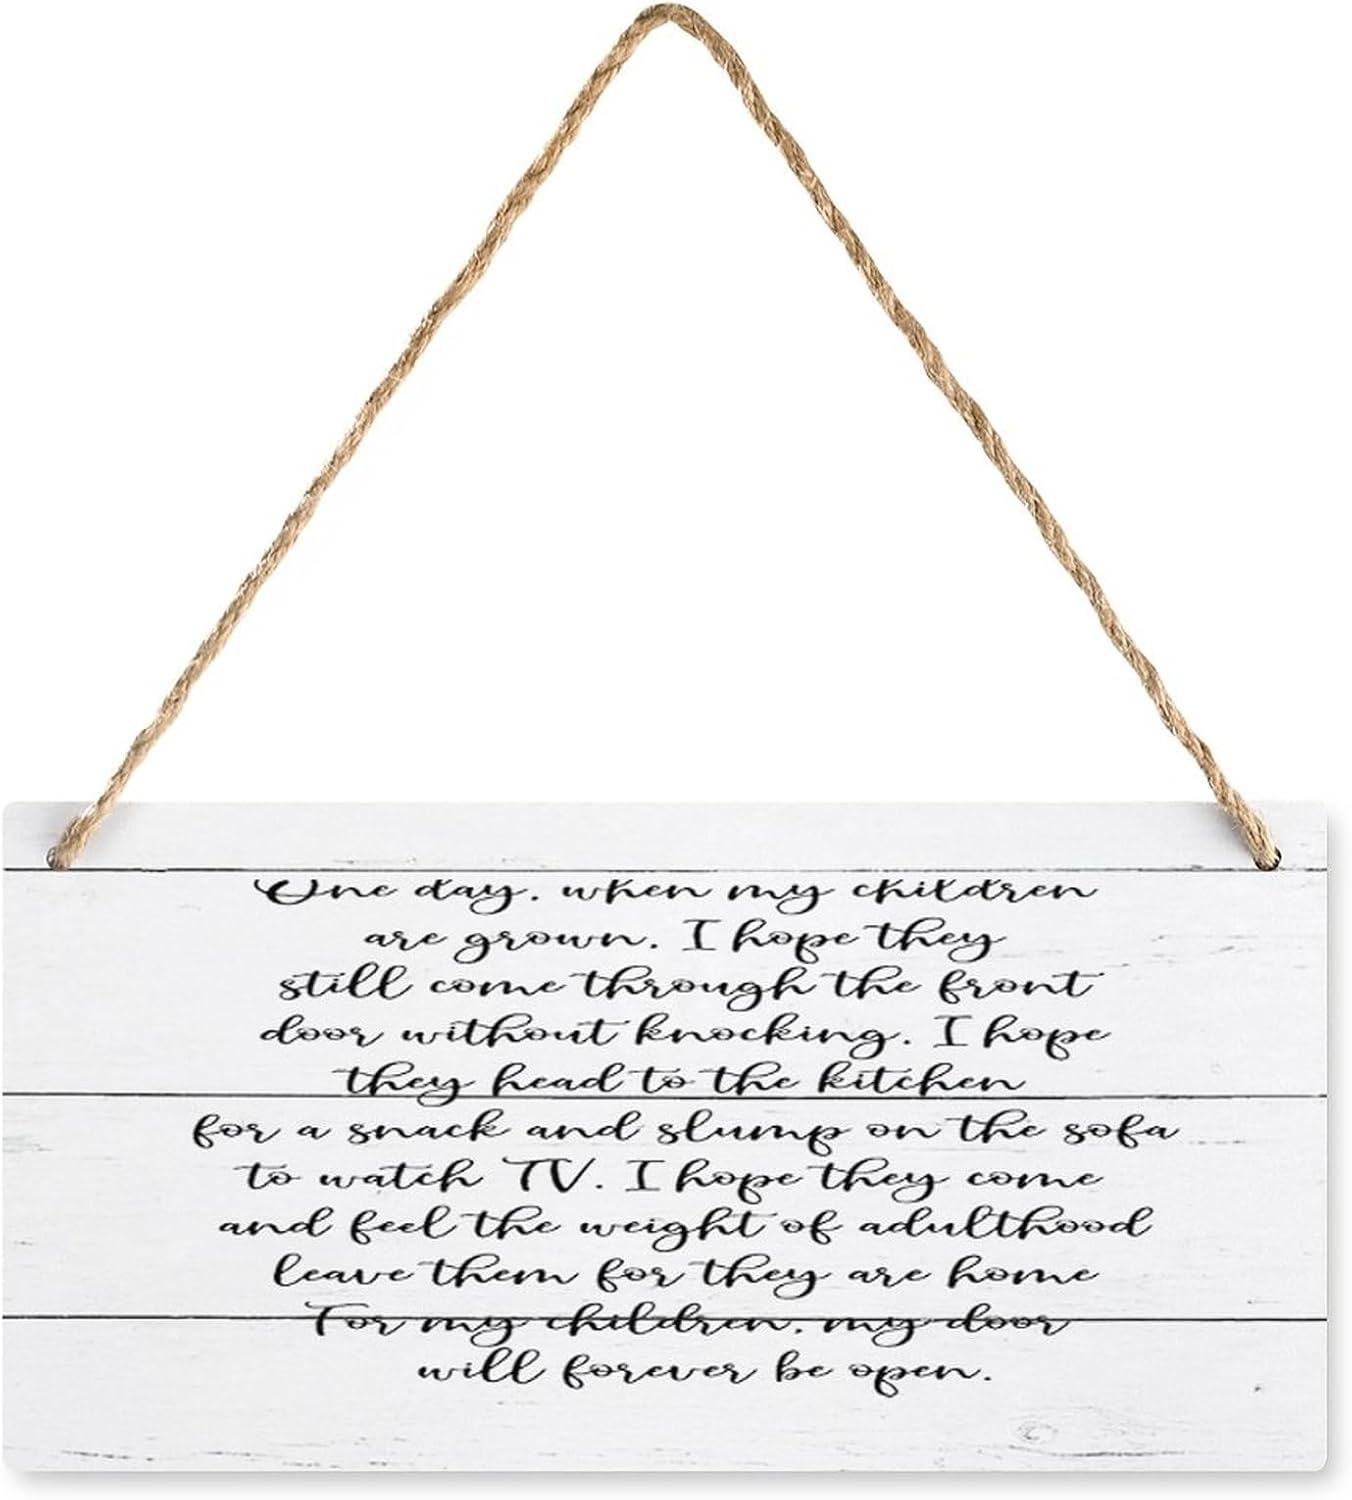 One day, when my children
are grown. I hope they
still come through the front
door without knocking. I hope
they head to the kitchen
for a snack and slump on the sofa
to watch TV. I hope they come
and feel the weight of adulthood
leave them for they are home
For my children, my door
will forever be open.